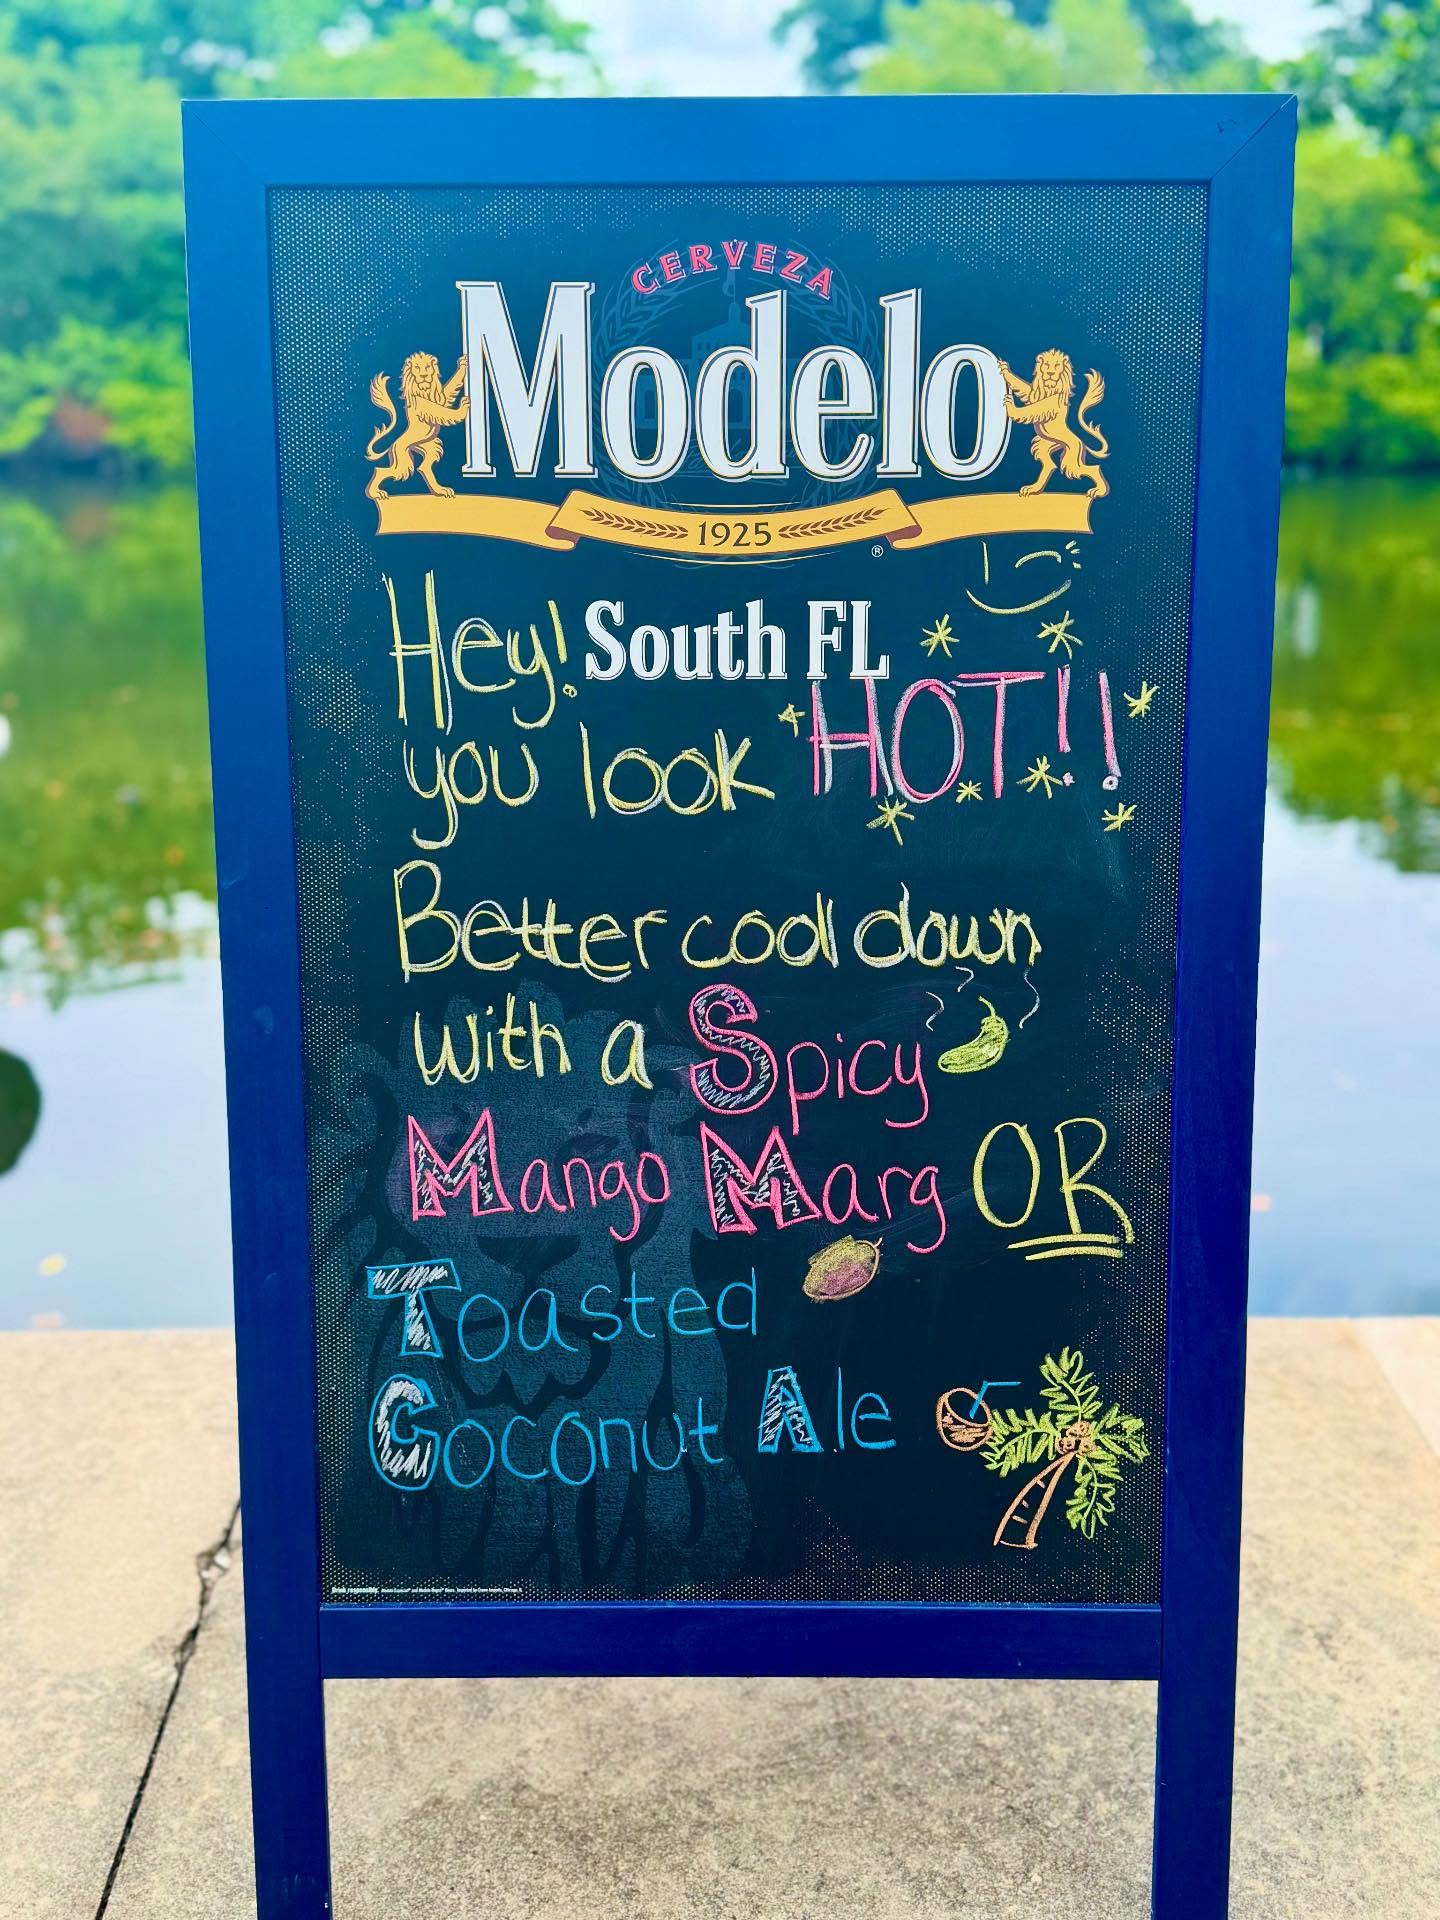 CERVEZA
Modelo
1925
®
Hey! South FL
you look HOT!!
Better cool down
with a Spicy
Mango Marg OR
Toasted
Coconut Ale
Drink responsibly.